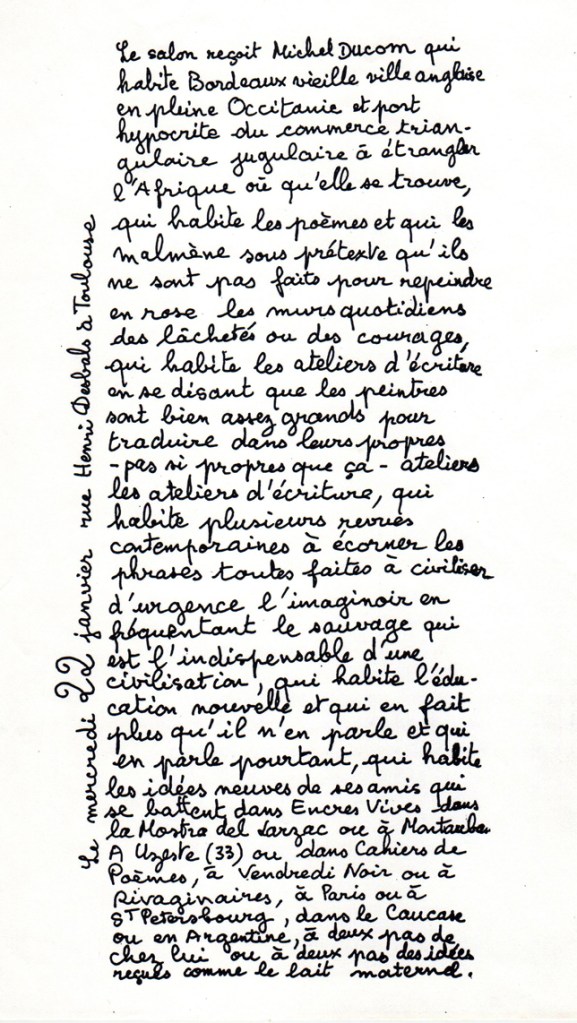 Le salon reçoit Michel Ducom qui
habite Bordeaux vieille ville anglaise
en pleine Occitanie et port
hypocrite du commerce trian-
gulaire jugulaire à étrangler
l'Afrique où qu'elle se trouve,
qui habite les poèmes et qui les
malmène sous prétexte qu'ils
ne sont pas faits pour repeindre
en rose les murs quotidiens
des lâchetés ou des courages,
qui habite les ateliers d'écriture
en se disant que les peintres
sont bien assez grands pour
traduire dans leurs propres
- pas si propres que ça - ateliers
les ateliers d'écriture, qui
habite plusieurs revues
contemporaines à écorner les
phrases toutes faites à civiliser
d'urgence l'imaginoir en
fréquentant le sauvage qui
est l'indispensable d'une
civilisation, qui habite l'édu-
cation nouvelle et qui en fait
plus qu'il n'en parle et qui
en parle pourtant, qui habite
les idées neuves de ses amis qui
se battent dans Encres Vives dans
la Mostra del Larzac ou à Montauban
A Uzeste (33) ou dans Cahiers de
Poèmes, à Vendredi Noir ou à
Rivaginaires, à Paris ou à
St Petersbourg, dans le Caucase
ou en Argentine, à deux pas de
chez lui ou à deux pas des idées
reçues comme le lait maternel.
Le mercredi 22 janvier rue Henri Desbals à Toulouse